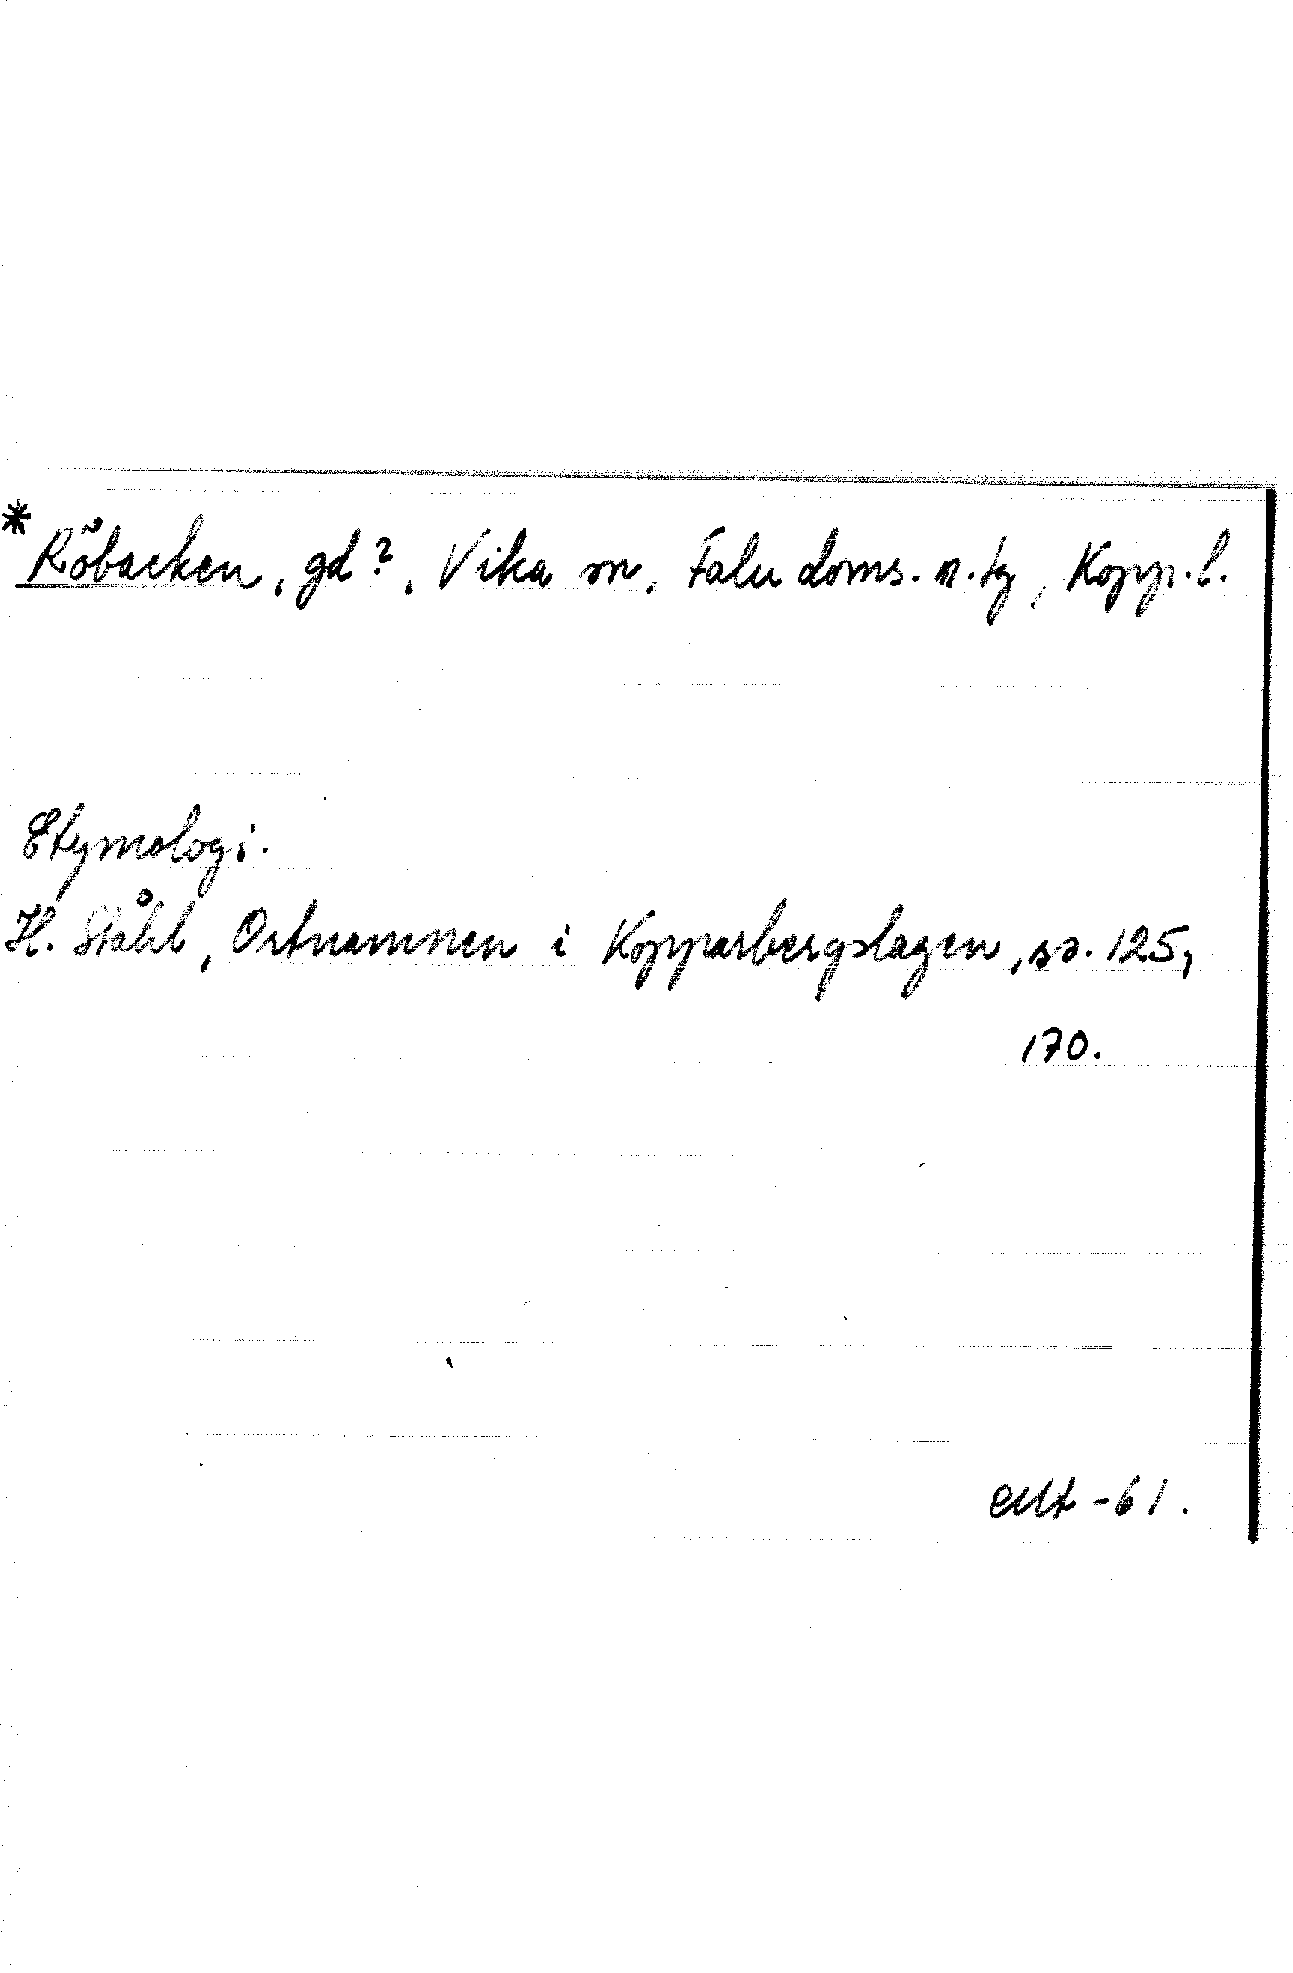 *Röbacken, gd?, Vika sn, Falu doms. n. tg, Kopp. l.
Etymologi.
H. Ståhl, Ortnamnen i Kopparbergslagen, ss. 125,
170.
-61.